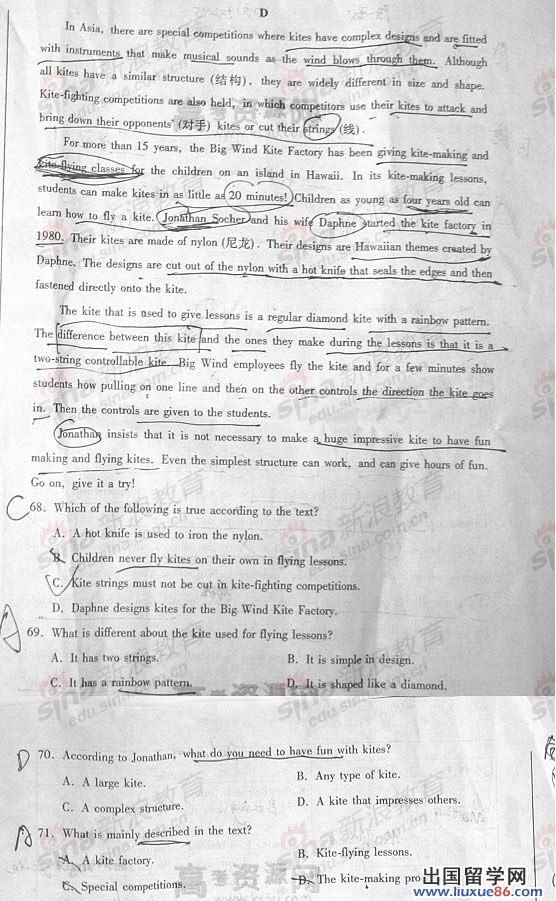 D
In Asia, there are special competitions where kites have complex designs and are fitted
with instruments that make musical sounds as the wind blows through them. Although
all kites have a similar structure (结构), they are widely different in size and shape.
Kite-fighting competitions are also held, in which competitors use their kites to attack and
bring down their opponents' (对手) kites or cut their strings (线).
For more than 15 years, the Big Wind Kite Factory has been giving kite-making and
kite-flying classes for the children on an island in Hawaii. In its kite-making lessons,
students can make kites in as little as 20 minutes! Children as young as four years old can
learn how to fly a kite. Jonathan Socher and his wife Daphne started the kite factory in
1980. Their kites are made of nylon (尼龙). Their designs are Hawaiian themes created by
Daphne. The designs are cut out of the nylon with a hot knife that seals the edges and then
fastened directly onto the kite.
The kite that is used to give lessons is a regular diamond kite with a rainbow pattern.
The difference between this kite and the ones they make during the lessons is that it is a
two-string controllable kite. Big Wind employees fly the kite and for a few minutes show
students how pulling on one line and then on the other controls the direction the kite goes
in. Then the controls are given to the students.
Jonathan insists that it is not necessary to make a huge impressive kite to have fun
making and flying kites. Even the simplest structure can work, and can give hours of fun.
Go on, give it a try!
C 68. Which of the following is true according to the text?
A. A hot knife is used to iron the nylon.
B. Children never fly kites on their own in flying lessons.
C. Kite strings must not be cut in kite-fighting competitions.
D. Daphne designs kites for the Big Wind Kite Factory.
A 69. What is different about the kite used for flying lessons?
A. It has two strings. B. It is simple in design.
C. It has a rainbow pattern. D. It is shaped like a diamond.
D 70. According to Jonathan, what do you need to have fun with kites?
A. A large kite. B. Any type of kite.
C. A complex structure. D. A kite that impresses others.
A 71. What is mainly described in the text?
A. A kite factory. B. Kite-flying lessons.
C. Special competitions. D. The kite-making pro
出国留学网
www.liuxue86.com